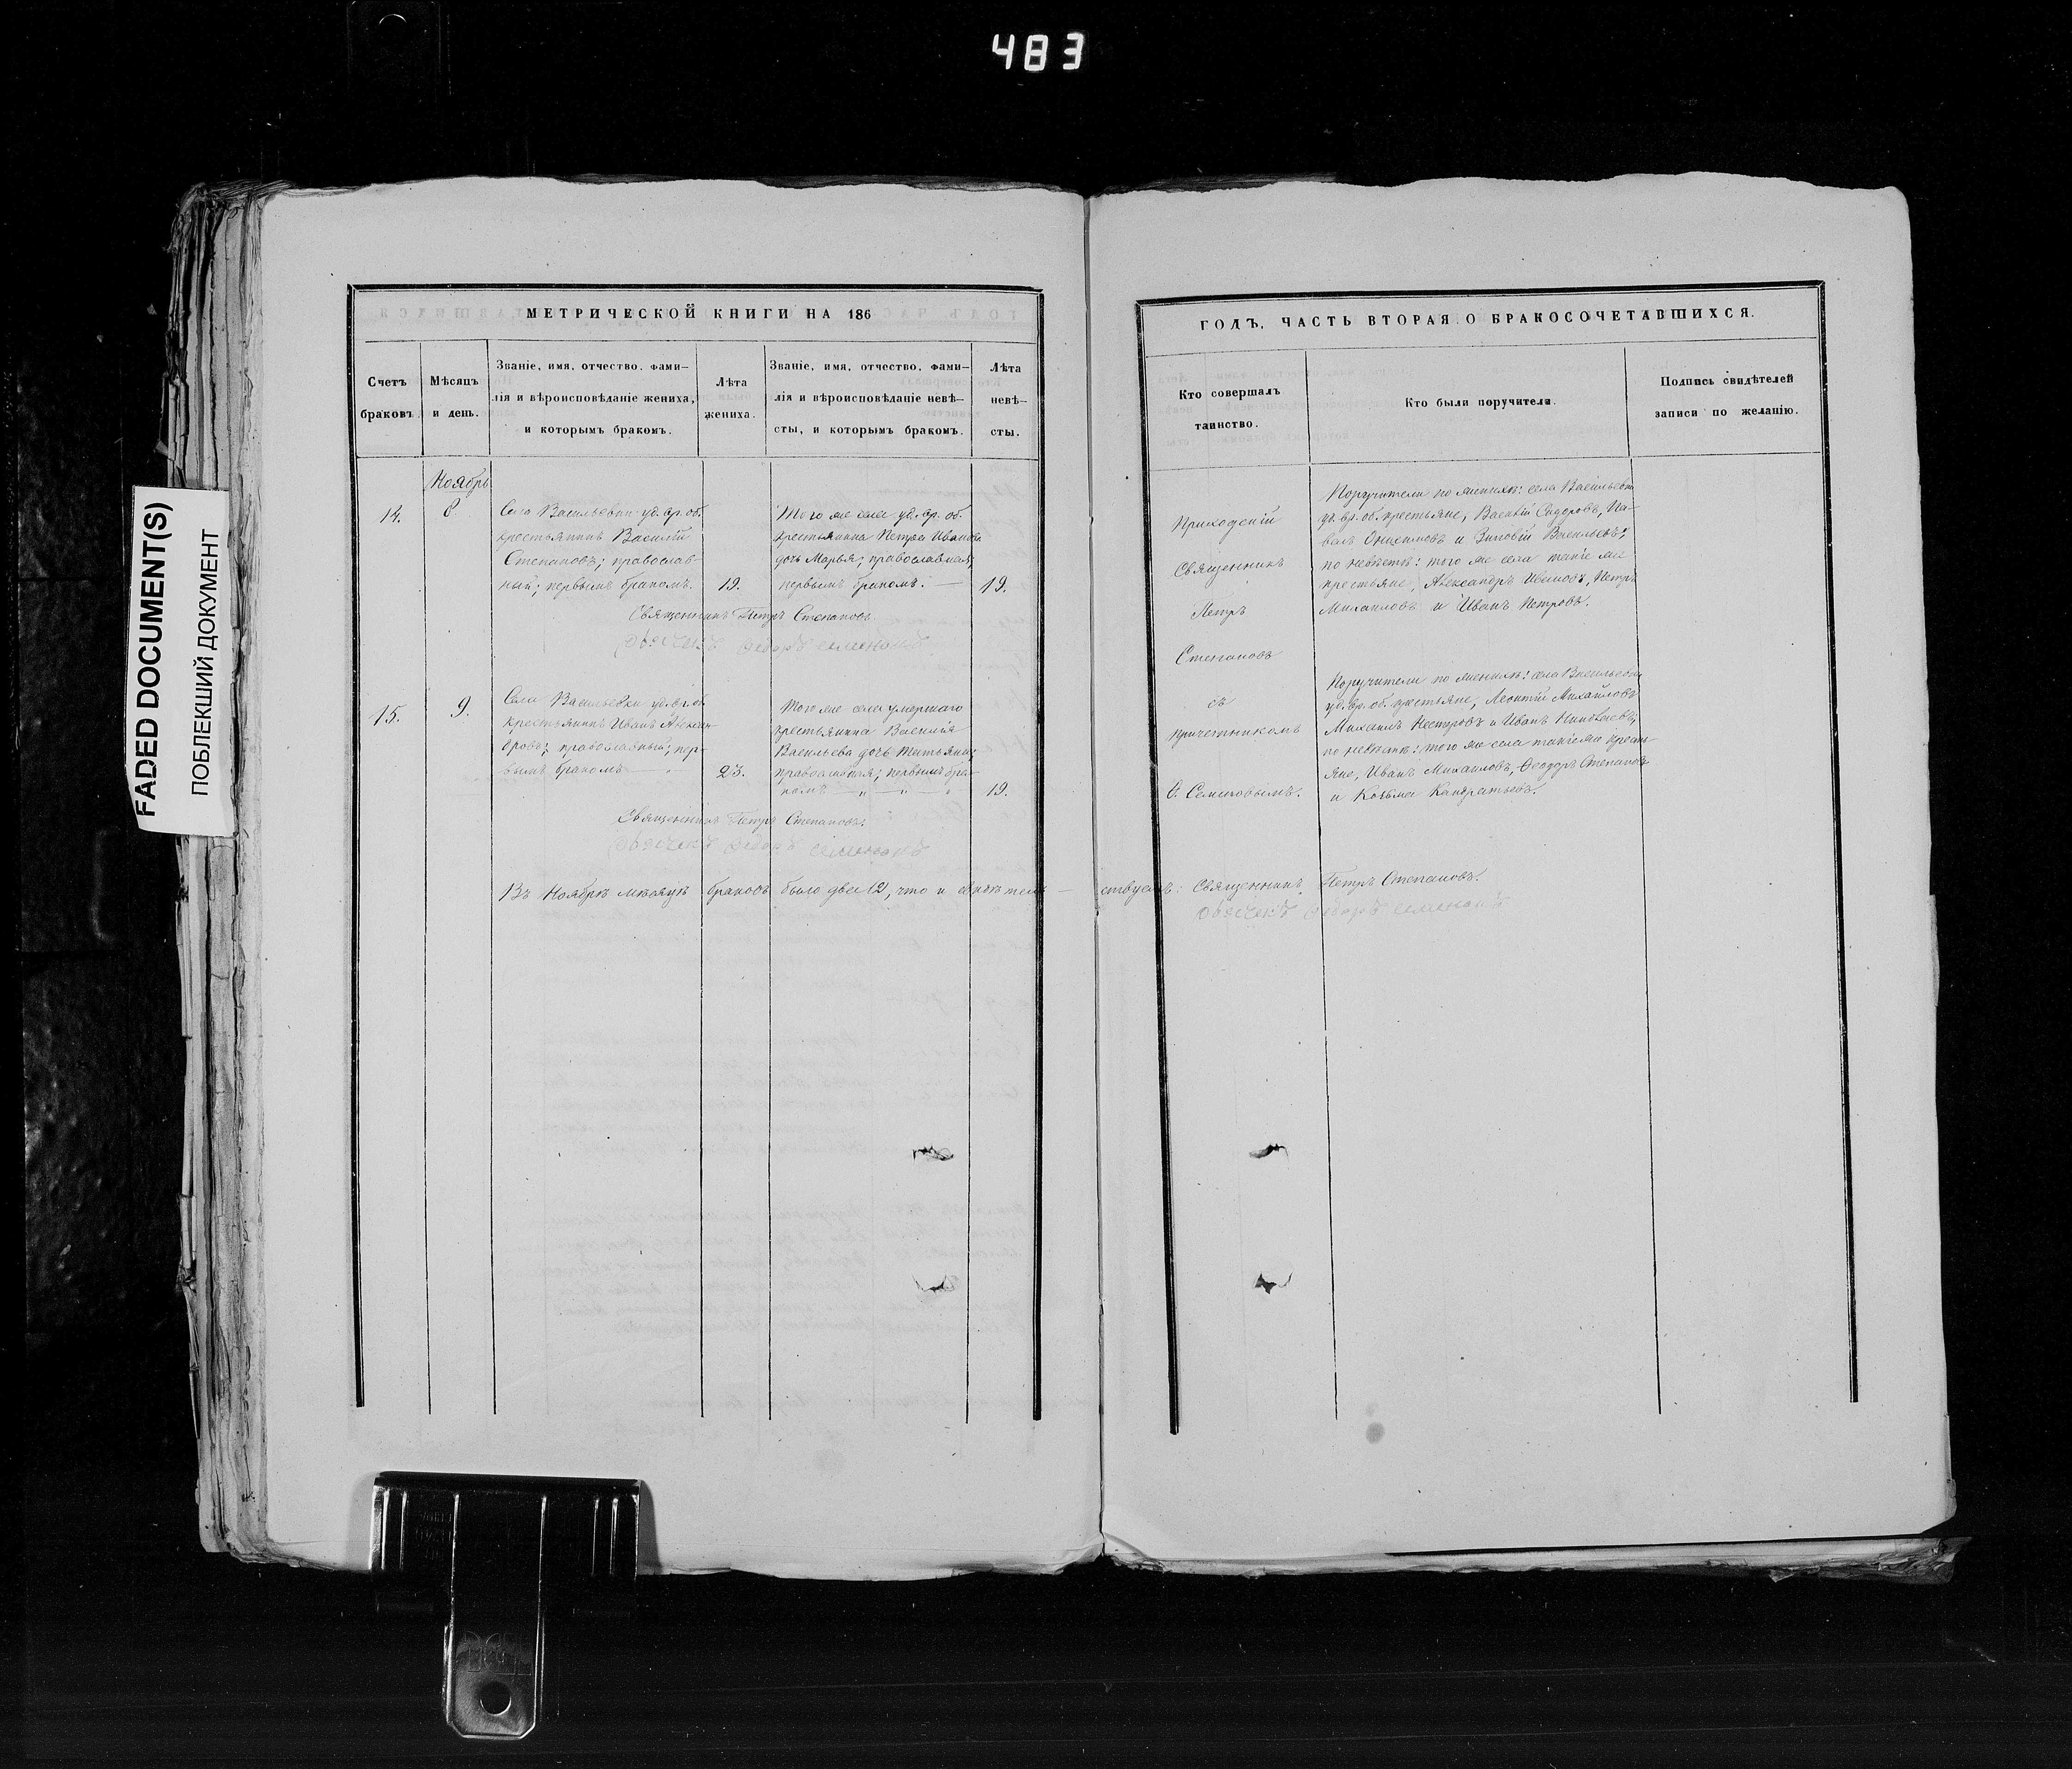 483
FADED DOCUMENT(S)
ПОБЛЕКШИЙ ДОКУМЕНТ
МЕТРИЧЕСКОЙ КНИГИ НА 186
Счетъ браковъ.
Мѣсяцъ и день.
Званіе, имя, отчество, фами-
лія и вѣроисповѣданіе жениха,
и которымъ бракомъ.
Лѣта жениха.
Званіе, имя, отчество, фами-
лія и вѣроисповѣданіе невѣ-
сты, и которымъ бракомъ.
Лѣта невѣ-
сты.
Ноябрь
14.
8.
Села Васильевки уд. вр. об.
крестьянинъ Василій
Степановъ; православ-
ный; первымъ бракомъ.
19.
Того же села уд. вр. об.
крестьянина Петра Иванова
дочь Марья; православная;
первымъ бракомъ. —
19.
Священникъ Петръ Степановъ
Федоръ Семеновъ
15.
9.
Села Васильевки уд. вр. об.
крестьянинъ Иванъ Алексан-
дровъ; православный; пер-
вымъ бракомъ
23.
Того же села умершаго
крестьянина Василія
Васильева дочь Татьяна;
православная; первымъ бра-
комъ
19.
Священникъ Петръ Степановъ.
Федоръ Семеновъ
Въ Ноябрѣ мѣсяцѣ браковъ было два (2, что и свидѣтель — ствуемъ: Священникъ Петръ Степановъ.
Федоръ Семеновъ
ГОДЪ, ЧАСТЬ ВТОРАЯ О БРАКОСОЧЕТАВШИХСЯ.
Кто совершалъ
таинство.
Кто были поручители.
Подпись свидѣтелей
записи по желанію.
Приходскій
Священникъ
Петръ
Степановъ
съ
причетникомъ
Ѳ. Семеновымъ.
Поручители по женихѣ: села Васильевки
уд. вр. об. крестьяне, Василій Сидоровъ, Па-
велъ Онисимовъ и Зиновій Васильевъ;
по невѣстѣ: того же села такіе же
крестьяне, Александръ Ивановъ, Петръ
Михаиловъ и Иванъ Петровъ.
Поручители по женихѣ: села Васильевки
уд. вр. об. крестьяне, Леонтій Михайловъ
Михаилъ Несторовъ и Иванъ Николаевъ;
по невѣстѣ: того же села такіе же кресть-
яне, Иванъ Михаиловъ, Ѳеодоръ Степановъ
и Козьма Кандратьевъ.